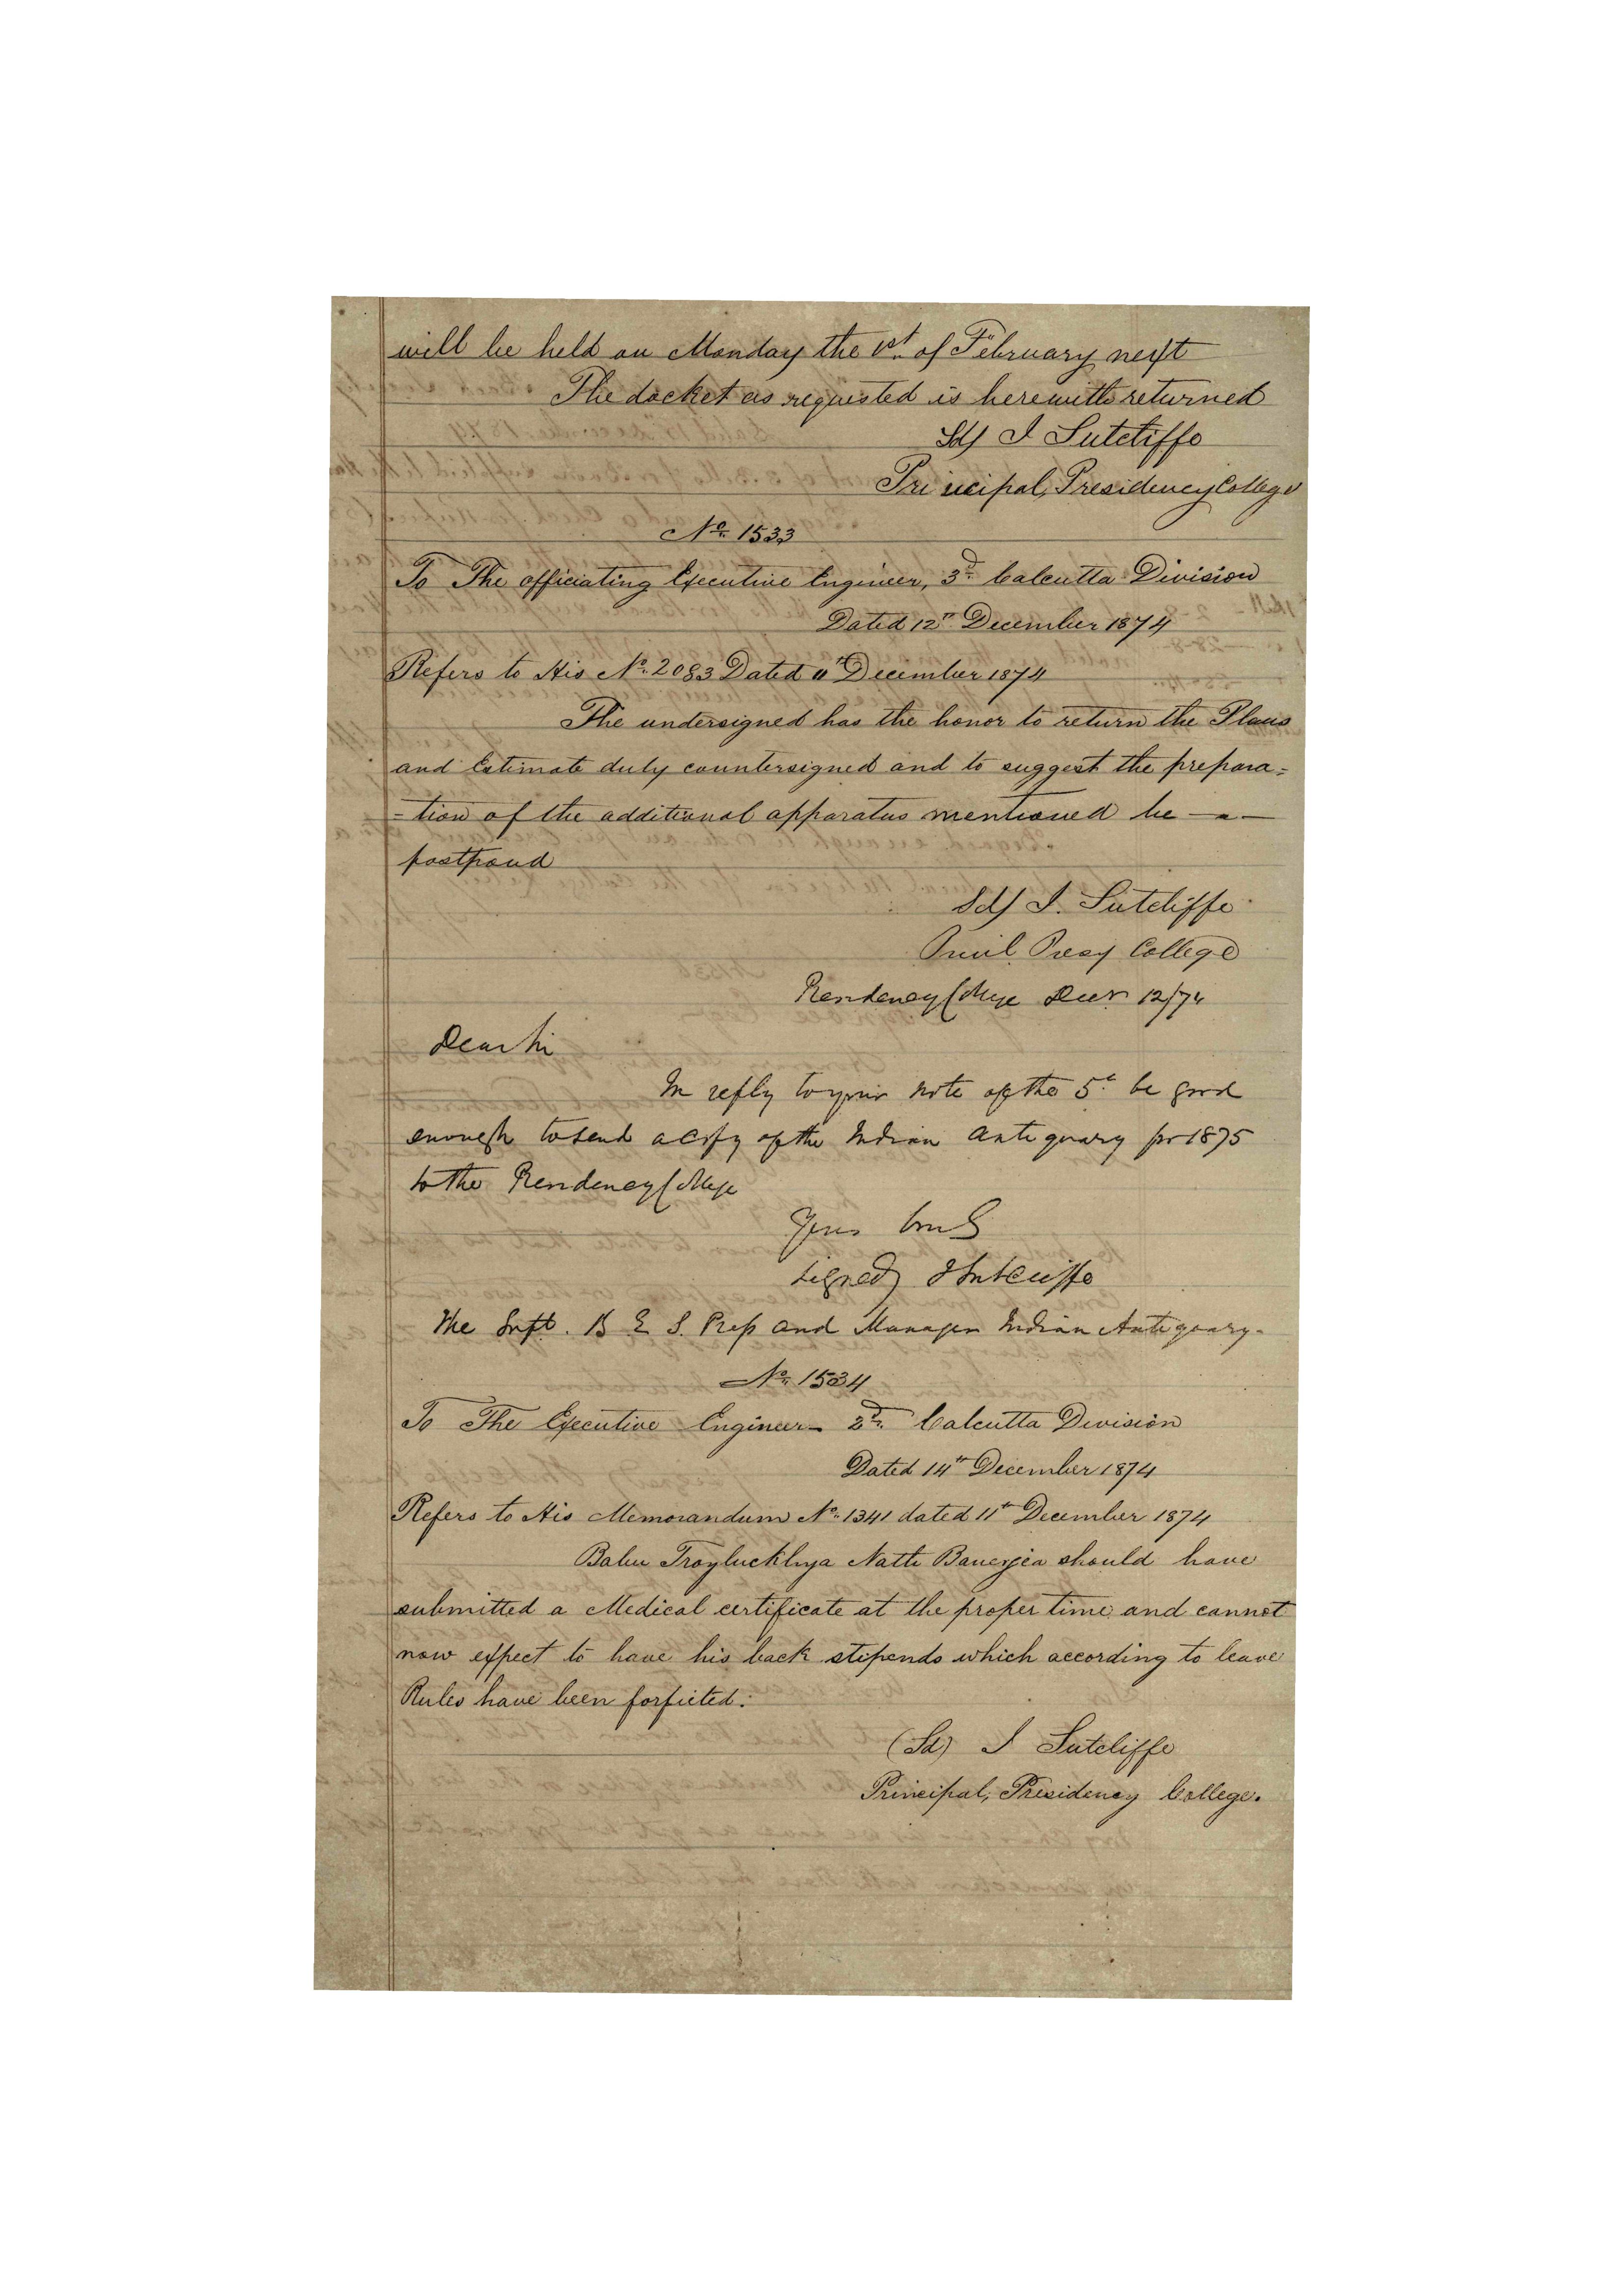 will be held on Monday the 1st of February next
The docket as requested is herewith returned
Sd/ J Sutcliffe
Principal, Presidency College
No. 1533
To The officiating Executive Engineer, 3d. Calcutta Division
Dated 12th December 1874
Refers to His No. 2083 Dated 11th December 1874
The undersigned has the honor to return the Plans
and Estimate duly countersigned and to suggest the prepara=
=tion of the additional apparatus mentioned be
postpond
Sd/ J. Sutcliffe
Presy College
Presidency College Decr 12/74
Dear Sir
In reply to your note of the 5th be good
enough to send a copy of the Indian Antiquary for 1875
to the Presidency College
Yours truly
Signed) J Sutcliffe
The Supt. B E S. Press and Manager Indian Antiquary-
No. 1534
To The Executive Engineer 2d. Calcutta Division
Dated 14th December 1874
Refers to His Memorandum No. 1341 dated 11th December 1874
Babu Troyluckhya Nath Banerjea should have
submitted a Medical certificate at the proper time and cannot
now expect to have his back stipends which according to leave
Rules have been forficted.
(Sd) J Sutcliffe
Principal, Presidency College.